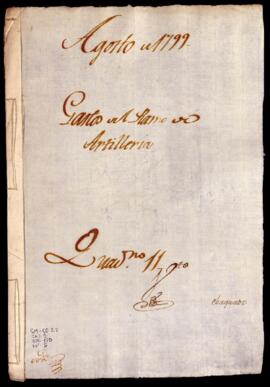 Agosto de 1799.
Gastos del Ramo de
Artilleria
Quad.no 11
chequeado